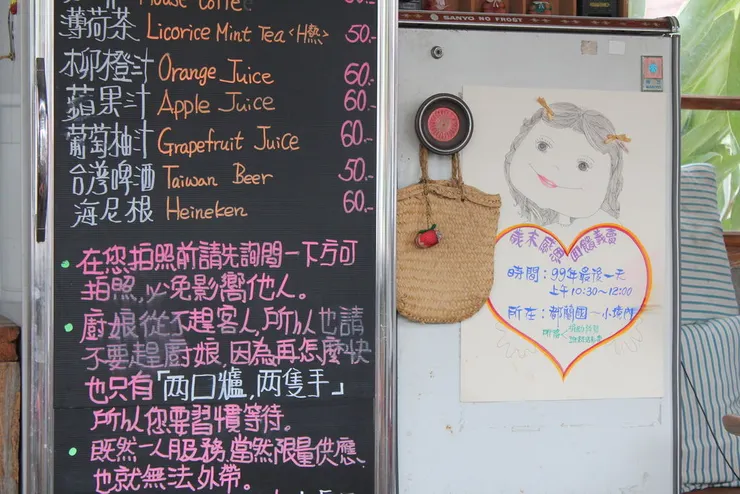 House Coffee
SANYO NO FROST
薄荷茶 Licorice Mint Tea <H熱> 50.-
柳橙汁 Orange Juice 60.-
蘋果汁 Apple Juice 60.-
葡萄柚汁 Grapefruit Juice 60.-
台灣啤酒 Taiwan Beer 50.-
海尼根 Heineken 60.-
在您拍照前請先詢問一下方可
拍照,以免影響他人。
廚娘從不趕客人,所以也請
不要趕廚娘,因為再怎麼快
也只有「两口爐,两隻手」
所以您要習慣等待。
既然一人服務,當然限量供應,
也就無法外帶。
歲末感恩回饋義賣
時間:99年最後一天
上午10:30~12:00
所在:都蘭國小